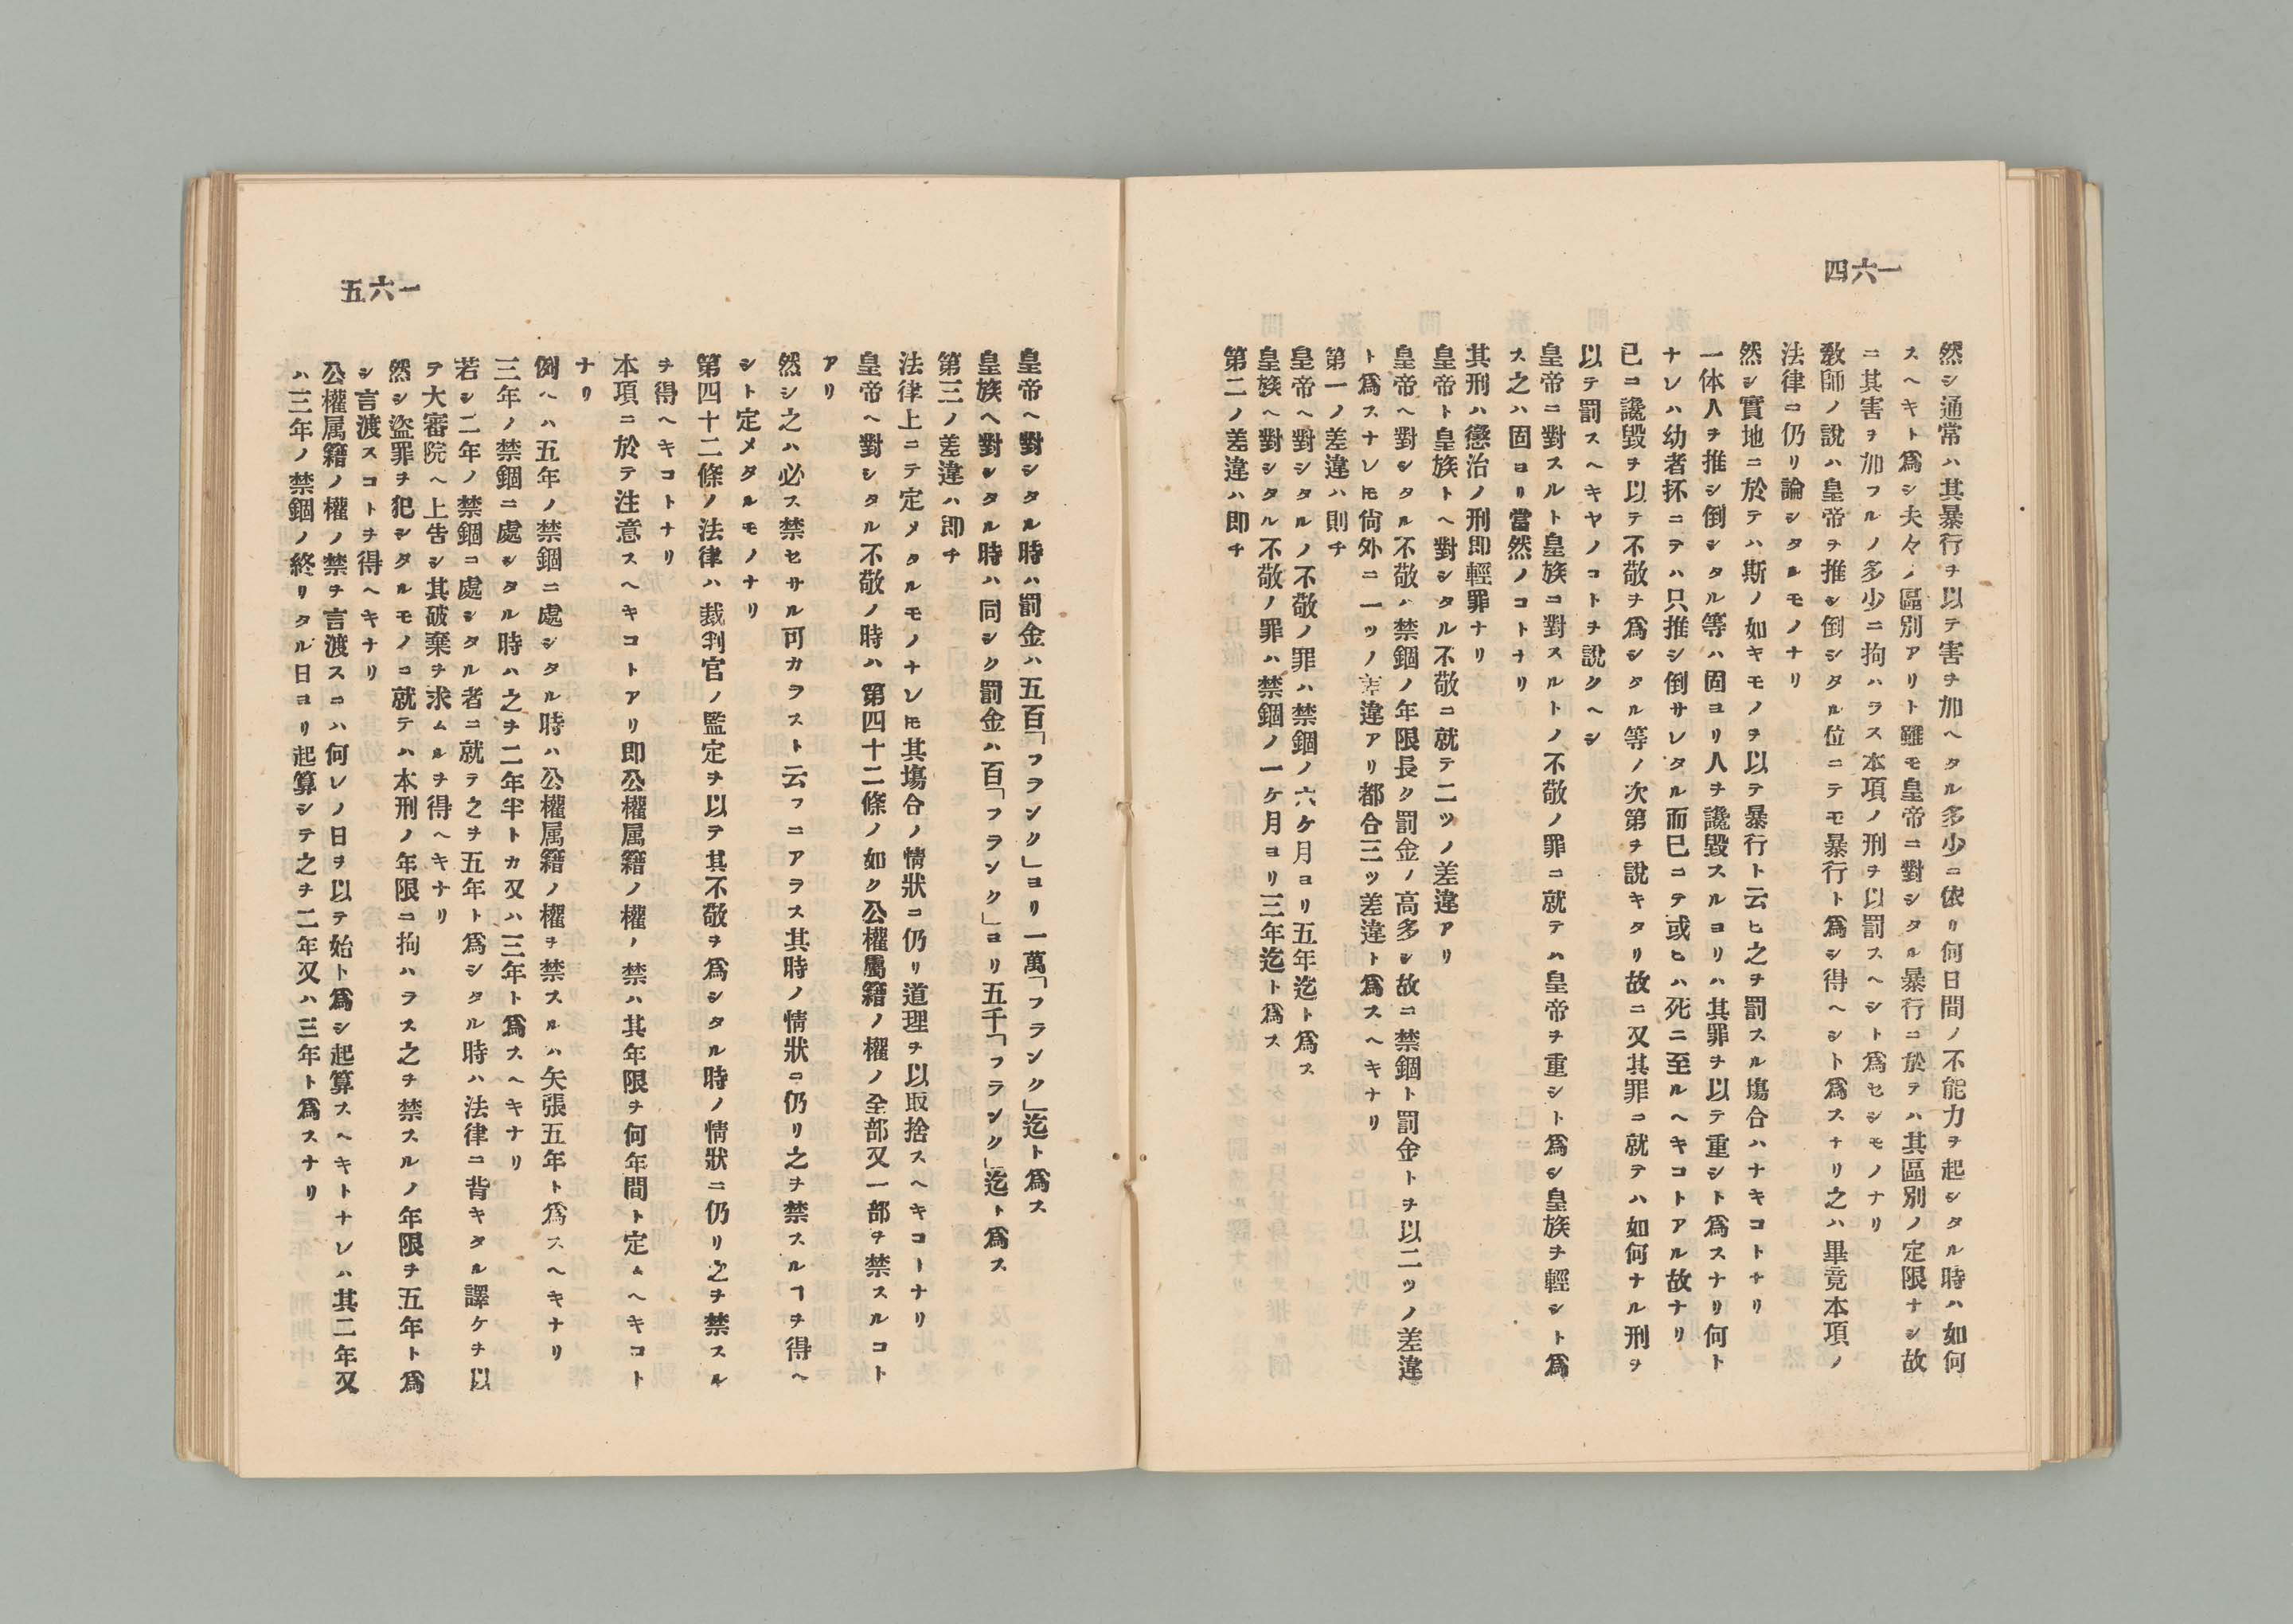 一六四
然シ通常ハ其暴行ヲ以テ害ヲ加ヘタル多少ニ依リ何日間ノ不能力ヲ起シタル時ハ如何
スヘキト爲シ夫々ノ區別アリト雖モ皇帝ニ對シタル暴行ニ於テハ其區別ノ定限ナシ故
ニ其害ヲ加フルノ多少ニ拘ハラス本項ノ刑ヲ以罰スヘシト爲セシモノナリ
敎師ノ說ハ皇帝ヲ推シ倒シタル位ニテモ暴行ト爲シ得ヘシト爲スナリ之ハ畢竟本項ノ
法律ニ仍リ論シタルモノナリ
然シ實地ニ於テハ斯ノ如キモノヲ以テ暴行ト云ヒ之ヲ罰スル塲合ハナキコトナリ
一体人ヲ推シ倒シタル等ハ固ヨリ人ヲ讒毀スルヨリハ其罪ヲ以テ重シト爲スナリ何ト
ナレハ幼者抔ニテハ只推シ倒サレタル而已ニテ或ヒハ死ニ至ルヘキコトアル故ナリ
已ニ讒毀ヲ以テ不敬ヲ爲シタル等ノ次第ヲ說キタリ故ニ又其罪ニ就テハ如何ナル刑ヲ
以テ罰スヘキヤノコトヲ說クヘシ
皇帝ニ對スルト皇族ニ對スルトノ不敬ノ罪ニ就テハ皇帝ヲ重シト爲シ皇族ヲ輕シト爲
ス之ハ固ヨリ當然ノコトナリ
其刑ハ懲治ノ刑即輕罪ナリ
皇帝ト皇族トヘ對シタル不敬ニ就テ二ツノ差違アリ
皇帝ヘ對シタル不敬ハ禁錮ノ年限長ク罰金ノ高多シ故ニ禁錮ト罰金トヲ以二ツノ差違
ト爲スナレ𪜈尙外ニ一ツノ差違アリ都合三ツ差違ト爲スヘキナリ
第一ノ差違ハ則チ
皇帝ヘ對シタルノ不敬ノ罪ハ禁錮ノ六ケ月ヨリ五年迄ト爲ス
皇族ヘ對シタル不敬ノ罪ハ禁錮ノ一ケ月ヨリ三年迄ト爲ス
第二ノ差違ハ即チ
一六五
皇帝ヘ對シタル時ハ罰金ハ五百「フランク」ヨリ一萬「フランク」迄ト爲ス
皇族ヘ對シタル時ハ同シク罰金ハ百「フランク」ヨリ五千「フランク」迄ト爲ス
第三ノ差違ハ即チ
法律上ニテ定メタルモノナレ𪜈其塲合ノ情狀ニ仍リ道理ヲ以取捨スヘキコーナリ
皇帝ヘ對シタル不敬ノ時ハ第四十二條ノ如ク公權屬籍ノ權ノ全部又一部ヲ禁スルコト
アリ
然シ之ハ必ス禁セサル可カラスト云フニアラス其時ノ情狀ニ仍リ之ヲ禁スルヿヲ得ヘ
シト定メタルモノナリ
第四十二條ノ法律ハ裁判官ノ監定ヲ以テ其不敬ヲ爲シタル時ノ情狀ニ仍リ之ヲ禁スル
ヲ得ヘキコトナリ
本項ニ於テ注意スヘキコトアリ即公權属籍ノ權ノ禁ハ其年限ヲ何年間ト定ムヘキコト
ナリ
例ヘハ五年ノ禁錮ニ處シタル時ハ公權属籍ノ權ヲ禁スルハ矢張五年ト爲スヘキナリ
三年ノ禁錮ニ處シタル時ハ之ヲ二年半トカ又ハ三年ト爲スヘキナリ
若シ二年ノ禁錮ニ處シタル者ニ就テ之ヲ五年ト爲シタル時ハ法律ニ背キタル譯ケヲ以
テ大審院ヘ上告シ其破棄ヲ求ムルヲ得ヘキナリ
然シ盜罪ヲ犯シタルモノニ就テハ本刑ノ年限ニ拘ハラス之ヲ禁スルノ年限ヲ五年ト爲
シ言渡スコトヲ得ヘキナリ
公權属籍ノ權ノ禁ヲ言渡スニハ何レノ日ヲ以テ始ト爲シ起算スヘキトナレハ其二年又
ハ三年ノ禁錮ノ終リタル日ヨリ起算シテ之ヲ二年又ハ三年ト爲スナリ